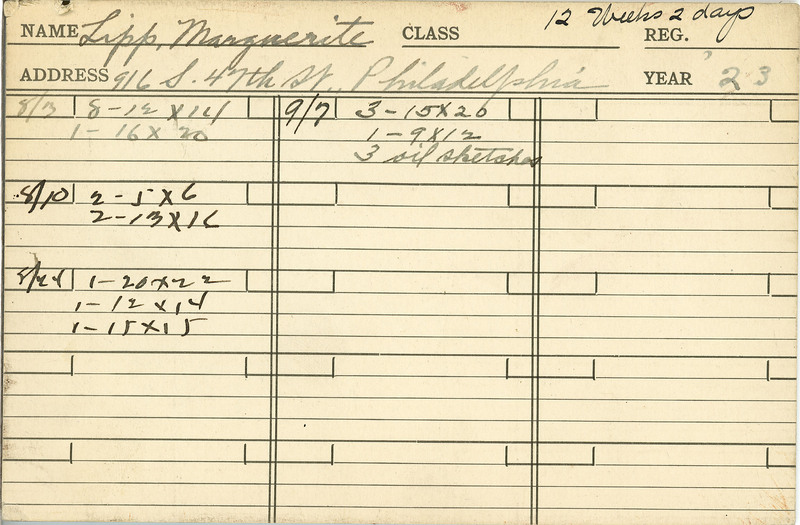 12 Weeks 2 days
NAME Lipp, Marguerite CLASS REG.
ADDRESS 916 S. 47th St., Philadelphia YEAR 23
8/3 8-12 X 14
1-16 X 20
8/10 2-5 X 6
2-13 X 16
8/24 1-20 X 22
1-12 X 14
1-15 X 15
9/7 3-15 X 20
1-9 X 12
3 oil sketches